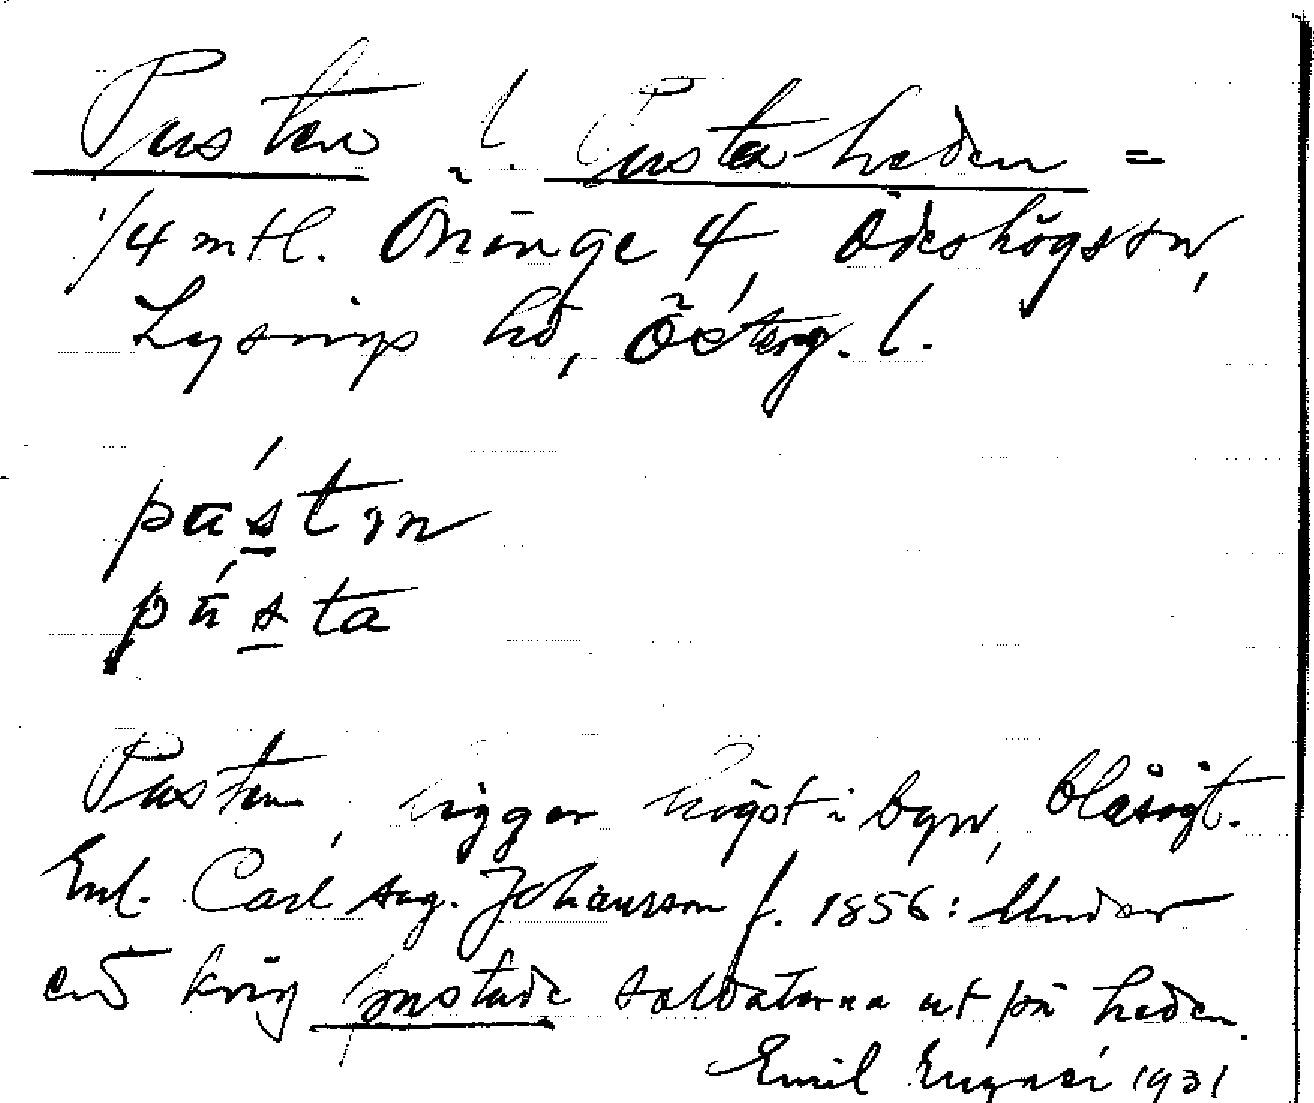 Pusten l. Pustaheden =
1/4 mtl. Önänge 4, Ödeshögs sn,
Lysings hd, Österg. l.
pústın
pústa
Pusten, ligger högst i byn, blåsigt.
Enl. Carl Aug. Johansson f. 1856: Under
ett krig pustade soldaterna ut på heden.
Emil 1931